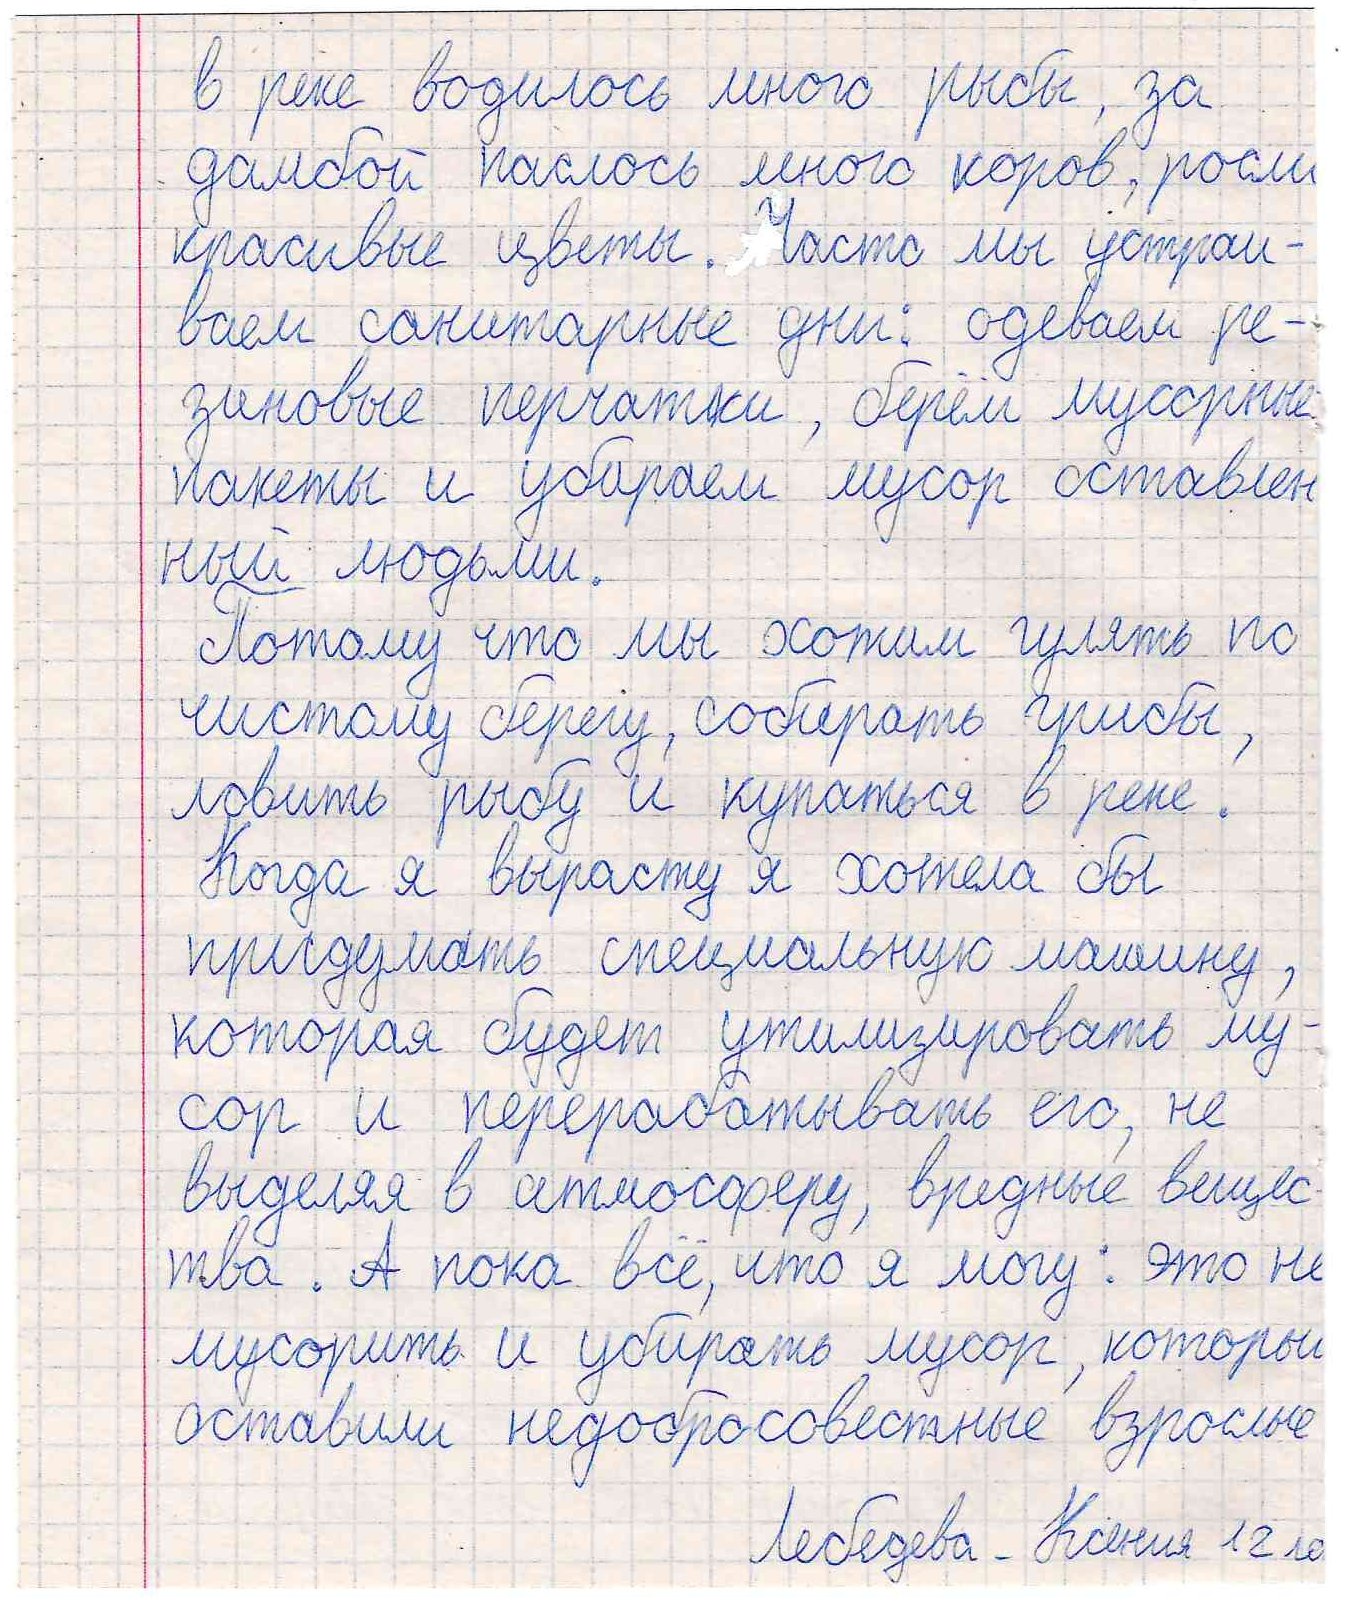 в реке водилось много рыбы, за
дамбой паслось много коров, росли
красивые цветы. Часто мы устраи-
ваем санитарные дни: одеваем ре-
зиновые перчатки, берём мусорные
пакеты и убираем мусор оставлен
ный людьми.
Потому что мы хотим гулять по
чистому берегу, собирать грибы,
ловить рыбу и купаться в реке.
Когда я вырасту я хотела бы
придумать специальную машину,
которая будет утилизировать му-
сор и перерабатывать его, не
выделяя в атмосферу, вредные вещес
тва. А пока всё, что я могу: это не
мусорить и убирать мусор, которы
оставили недобросовестные взрослые
Лебедева - Ксения 12 ле